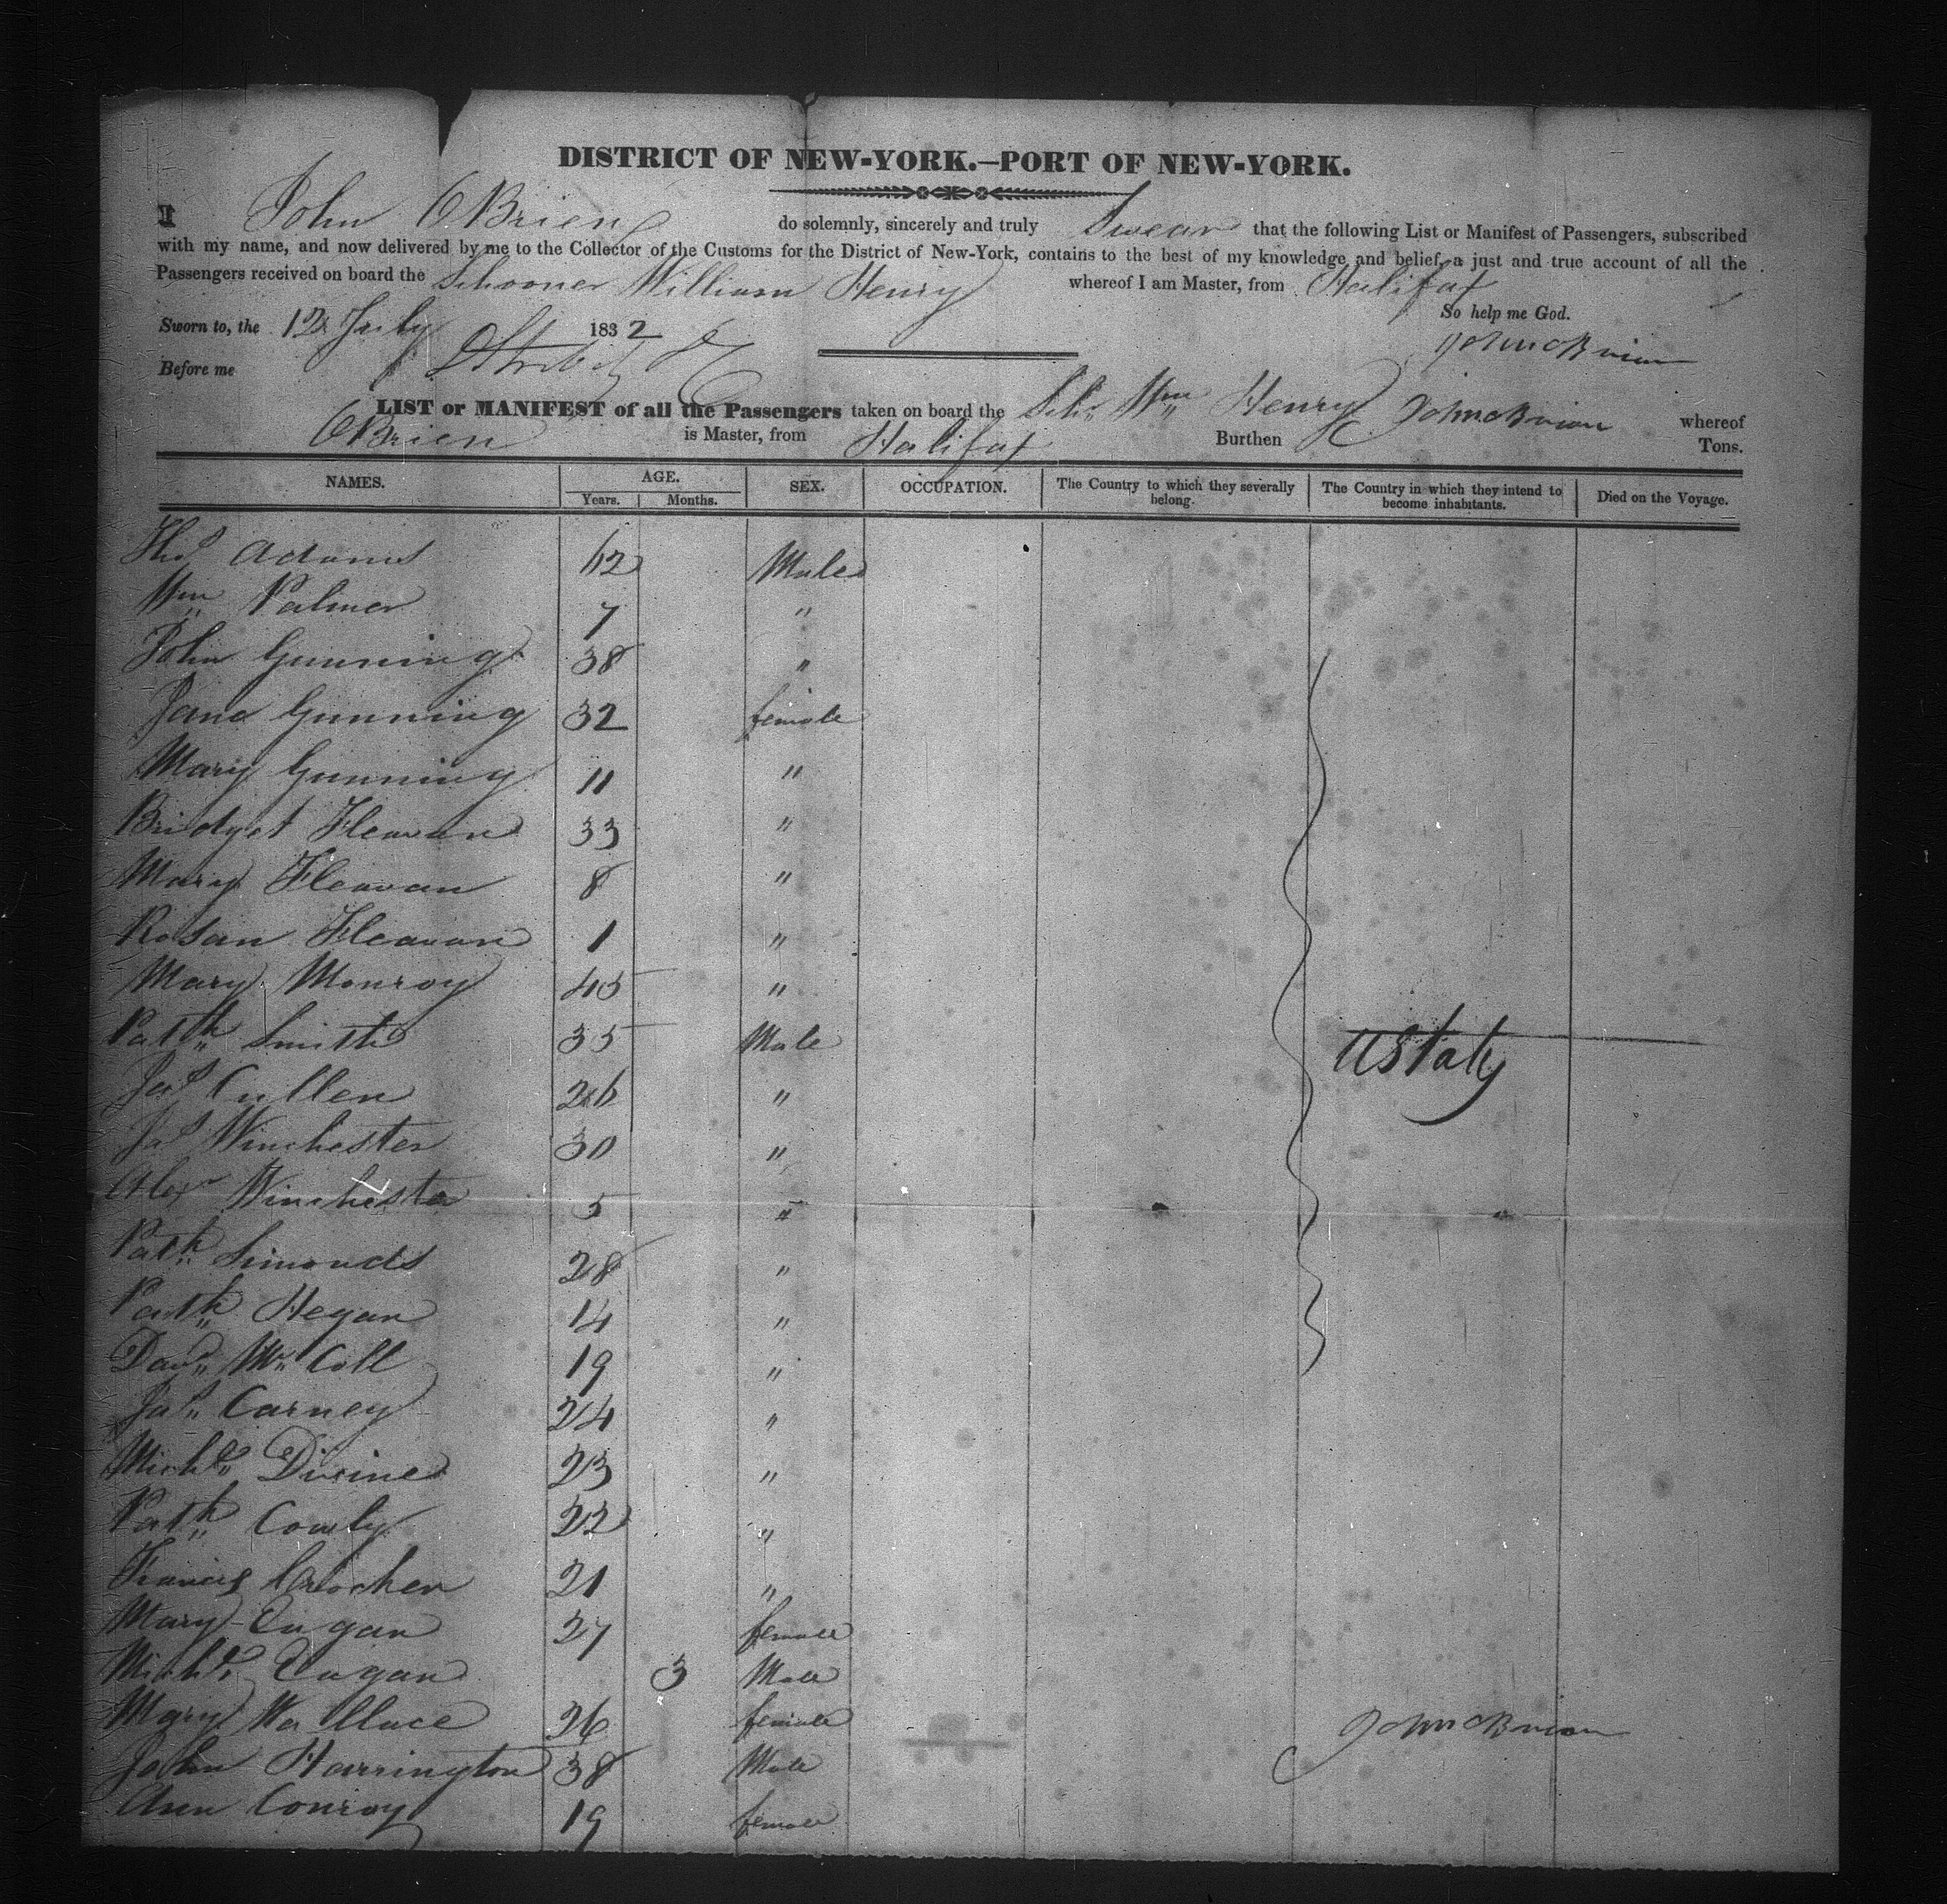 DISTRICT OF NEW-YORK.—PORT OF NEW-YORK.
I John OBrien do solemnly, sincerely and truly Swear that the following List or Manifest of Passengers, subscribed
with my name, and now delivered by me to the Collector of the Customs for the District of New-York, contains to the best of my knowledge and belief, a just and true account of all the
Passengers received on board the Schooner William Henry whereof I am Master, from Halifax
So help me God.
Sworn to, the 12 July 1832
John OBrien
Before me
LIST or MANIFEST of all the Passengers taken on board the Schr Wm Henry John OBrien whereof
OBrien is Master, from Halifax Burthen Tons.
NAMES. AGE. Years. Months. SEX. OCCUPATION. The Country to which they severally belong. The Country in which they intend to become inhabitants. Died on the Voyage.
Thos Adams 62 Male
Wm Palmer 7 "
John Gunning 38 "
Jane Gunning 32 female
Mary Gunning 11 "
Bridget Fleavan 33 "
Mary Fleavan 8 "
Rosan Fleavan 1 "
Mary Monroy 45 "
Patk Smith 35 Male U States
Jas Cullen 26 "
Jas Winchester 30 "
Alexr Winchester 5 "
Patk Simonds 28 "
Patk Hegan 14 "
Davd Mc Coll 19 "
Jas Carney 24 "
Michl Divine 23 "
Patk Comly 22 "
Francis Crocker 21 "
Mary Eagan 27 female
Michl Eagan 3 Male
Mary Wallace 26 female
John OBrien
John Harrington 38 Male
Ann Conroy 19 female